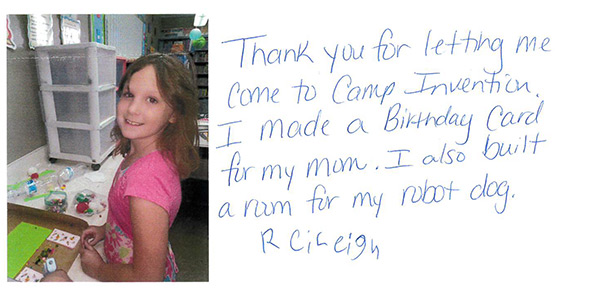 Thank you for letting me
come to Camp Invention.
I made a Birthday Card
for my mom. I also built
a room for my robot dog.